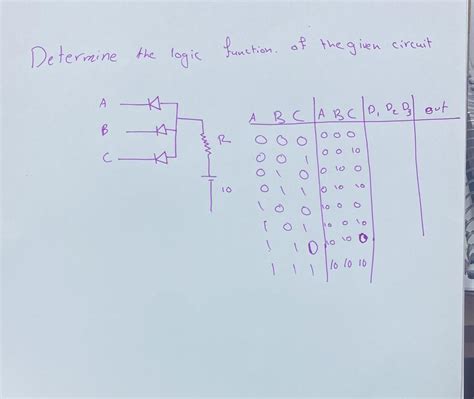 Determine the logic function. of the given circuit
A
B
C
R
10
A B C A B C D1 D2 D3 out
0 0 0 0 0 0
0 0 1 0 0 10
0 1 0 0 10 0
0 1 1 0 10 10
1 0 0 10 0 0
1 0 1 10 0 10
1 1 0 10 10 0
1 1 1 10 10 10